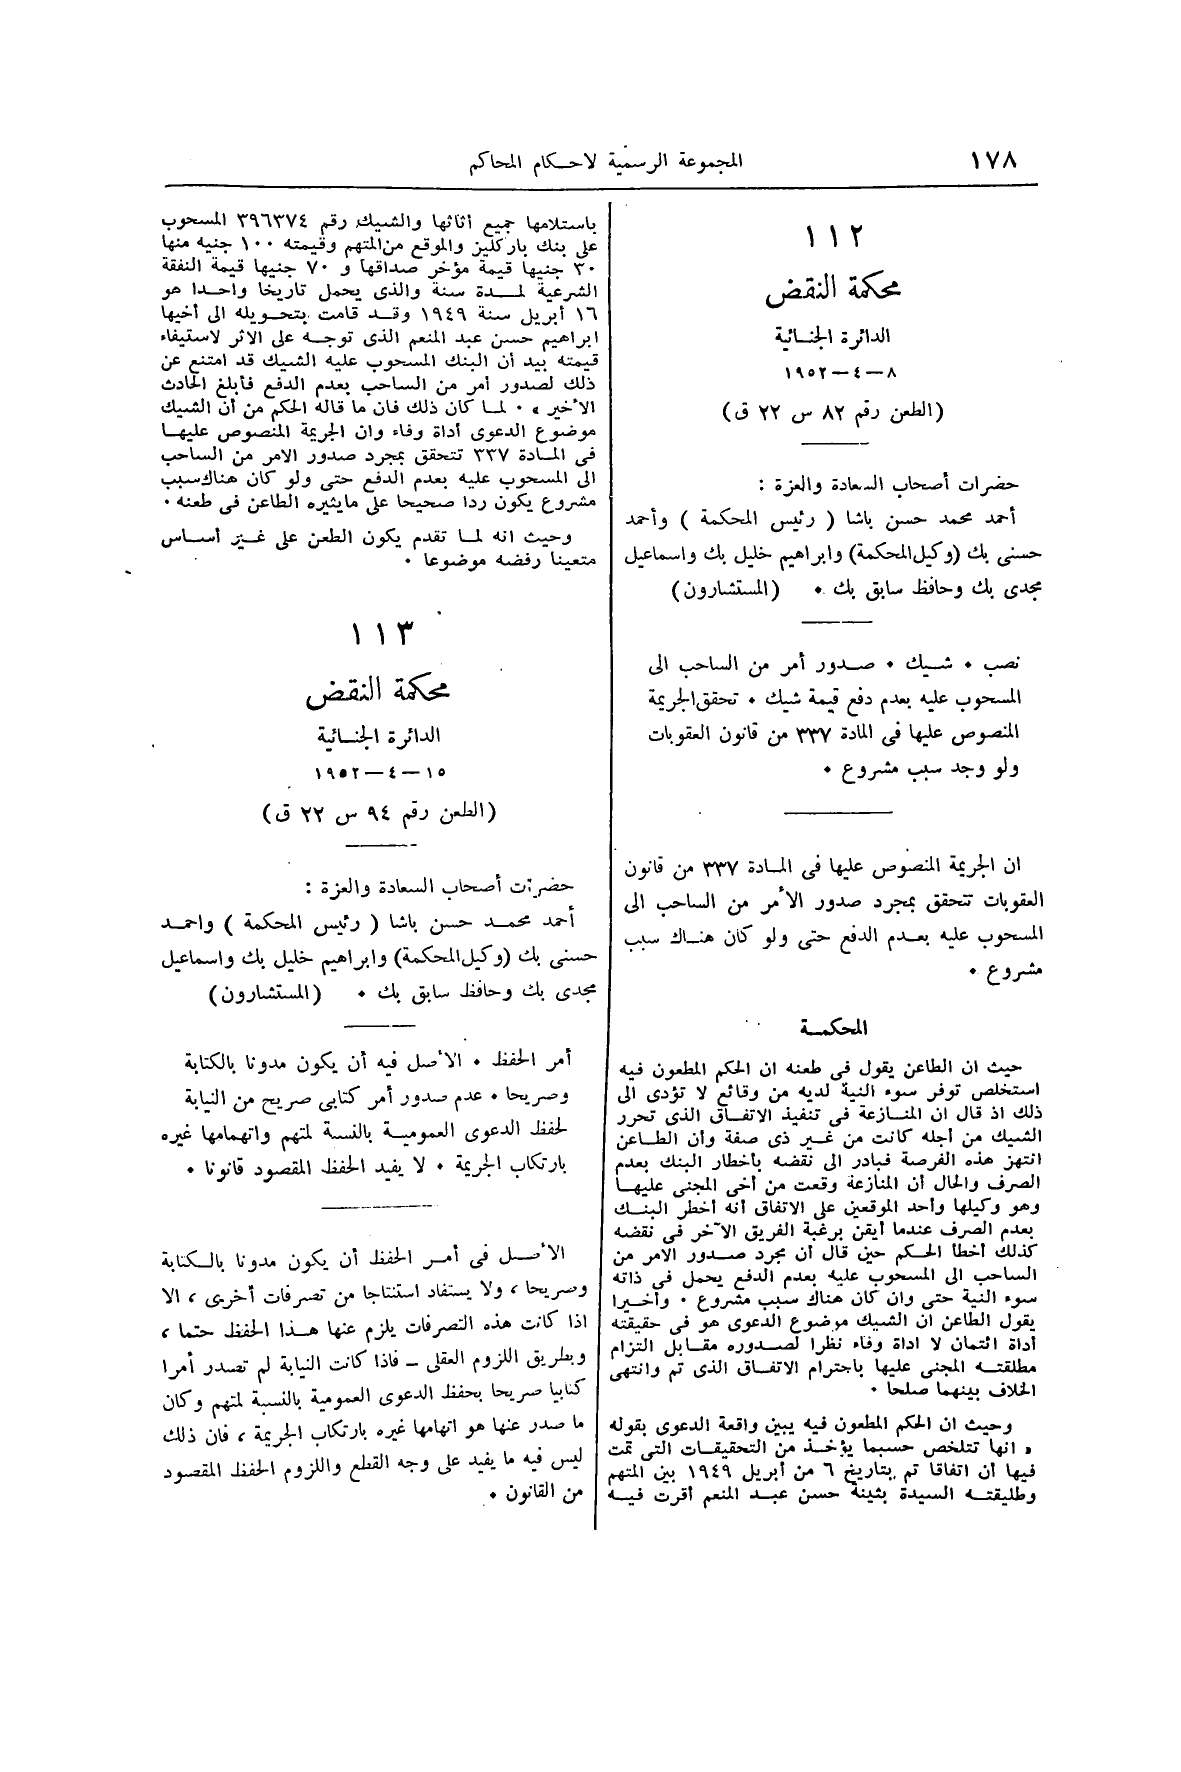 ١٧٨
المجموعة الرسمية لاحكام المحاكم
١١٢
محكمة النقض
الدائرة الجنائية
٨—٤—١٩٥٢
(الطعن رقم ٨٢ س ٢٢ ق)
حضرات أصحاب السعادة والعزة :
أحمد محمد حسن باشا ( رئيس المحكمة ) وأحمد
حسنى بك (وكيل المحكمة) وابراهيم خليل بك واسماعيل
مجدى بك وحافظ سابق بك ٠ (المستشارون)
نصب ٠ شيك ٠ صدور أمر من الساحب الى
المسحوب عليه بعدم دفع قيمة شيك ٠ تحقق الجريمة
المنصوص عليها فى المادة ٣٣٧ من قانون العقوبات
ولو وجد سبب مشروع ٠
ان الجريمة المنصوص عليها فى المادة ٣٣٧ من قانون
العقوبات تتحقق بمجرد صدور الأمر من الساحب الى
المسحوب عليه بعدم الدفع حتى ولو كان هناك سبب
مشروع ٠
المحكمة
حيث ان الطاعن يقول فى طعنه ان الحكم المطعون فيه
استخلص توفر سوء النية لديه من وقائع لا تؤدى الى
ذلك اذ قال ان المنازعة فى تنفيذ الاتفاق الذى تحرر
الشيك من أجله كانت من غير ذى صفة وأن الطاعن
انتهز هذه الفرصة فبادر الى نقضه بأخطار البنك بعدم
الصرف والحال أن المنازعة وقعت من أخى المجنى عليها
وهو وكيلها وأحد الموقعين على الاتفاق أنه أخطر البنك
بعدم الصرف عندما أيقن برغبة الفريق الآخر فى نقضه
كذلك أخطأ الحكم حين قال أن مجرد صدور الامر من
الساحب الى المسحوب عليه بعدم الدفع يحمل فى ذاته
سوء النية حتى وان كان هناك سبب مشروع ٠ وأخيرا
يقول الطاعن ان الشيك موضوع الدعوى هو فى حقيقته
أداة ائتمان لا اداة وفاء نظرا لصدوره مقابل التزام
مطلقته المجنى عليها باحترام الاتفاق الذى تم وانتهى
الخلاف بينهما صلحا ٠
وحيث ان الحكم المطعون فيه يبين واقعة الدعوى بقوله
« انها تتلخص حسبما يؤخذ من التحقيقات التى تمت
فيها أن اتفاقا تم بتاريخ ٦ من أبريل ١٩٤٩ بين المتهم
وطليقته السيدة بثينة حسن عبد المنعم أقرت فيه
باستلامها جميع أثاثها والشيك رقم ٣٩٦٣٧٤ المسحوب
على بنك باركليز والموقع من المتهم وقيمته ١٠٠ جنيه منها
٣٠ جنيها قيمة مؤخر صداقها و ٧٠ جنيها قيمة النفقة
الشرعية لمدة سنة والذى يحمل تاريخا واحدا هو
١٦ أبريل سنة ١٩٤٩ وقد قامت بتحويله الى أخيها
ابراهيم حسن عبد المنعم الذى توجه على الاثر لاستيفاء
قيمته بيد أن البنك المسحوب عليه الشيك قد امتنع عن
ذلك لصدور أمر من الساحب بعدم الدفع فأبلغ الحادث
الأخير » ٠ لما كان ذلك فان ما قاله الحكم من أن الشيك
موضوع الدعوى أداة وفاء وان الجريمة المنصوص عليها
فى المادة ٣٣٧ تتحقق بمجرد صدور الامر من الساحب
الى المسحوب عليه بعدم الدفع حتى ولو كان هناك سبب
مشروع يكون ردا صحيحا على مايثيره الطاعن فى طعنه ٠
وحيث انه لما تقدم يكون الطعن على غير أساس
متعينا رفضه موضوعا ٠
١١٣
محكمة النقض
الدائرة الجنائية
١٥—٤—١٩٥٢
(الطعن رقم ٩٤ س ٢٢ ق)
حضرات أصحاب السعادة والعزة :
أحمد محمد حسن باشا ( رئيس المحكمة ) واحمد
حسنى بك (وكيل المحكمة) وابراهيم خليل بك واسماعيل
مجدى بك وحافظ سابق بك ٠ (المستشارون)
أمر الحفظ ٠ الأصل فيه أن يكون مدونا بالكتابة
وصريحا ٠ عدم صدور أمر كتابى صريح من النيابة
لحفظ الدعوى العمومية بالنسبة لمتهم واتهمامها غيره
بارتكاب الجريمة ٠ لا يفيد الحفظ المقصود قانونا ٠
الأصل فى أمر الحفظ أن يكون مدونا بالكتابة
وصريحا ، ولا يستفاد استنتاجا من تصرفات أخرى ، الا
اذا كانت هذه التصرفات يلزم عنها هذا الحفظ حتما ،
وبطريق اللزوم العقلى – فاذا كانت النيابة لم تصدر أمرا
كتابيا صريحا بحفظ الدعوى العمومية بالنسبة لمتهم وكان
ما صدر عنها هو اتهامها غيره بارتكاب الجريمة ، فان ذلك
ليس فيه ما يفيد على وجه القطع واللزوم الحفظ المقصود
من القانون ٠